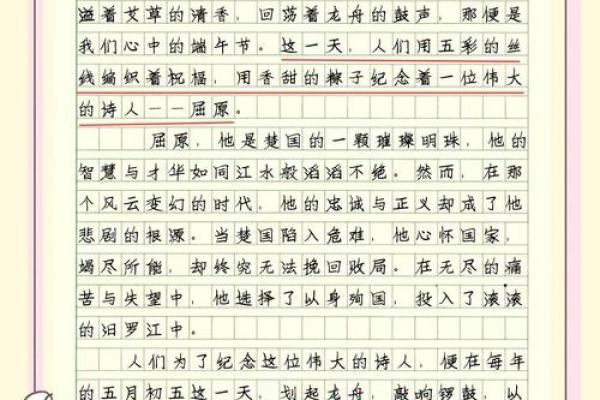 溢着艾草的清香，回荡着龙舟的鼓声，那便是
我们心中的端午节。这一天，人们用五彩的丝
线编织着祝福，用香甜的粽子纪念着一位伟大
的诗人——屈原。
屈原，他是楚国的一颗璀璨明珠，他的
智慧与才华如同江水般滔滔不绝。然而，在那
个风云变幻的时代，他的忠诚与正义却成了他
悲剧的根源。当楚国陷入危难，他心怀国家，
竭尽所能，却终究无法挽回败局。在无尽的痛
苦与失望中，他选择了以身殉国，投入了滚滚
的汨罗江中。
人们为了纪念这位伟大的诗人，便在每年
的五月初五这一天，划起龙舟，敲响锣鼓，以